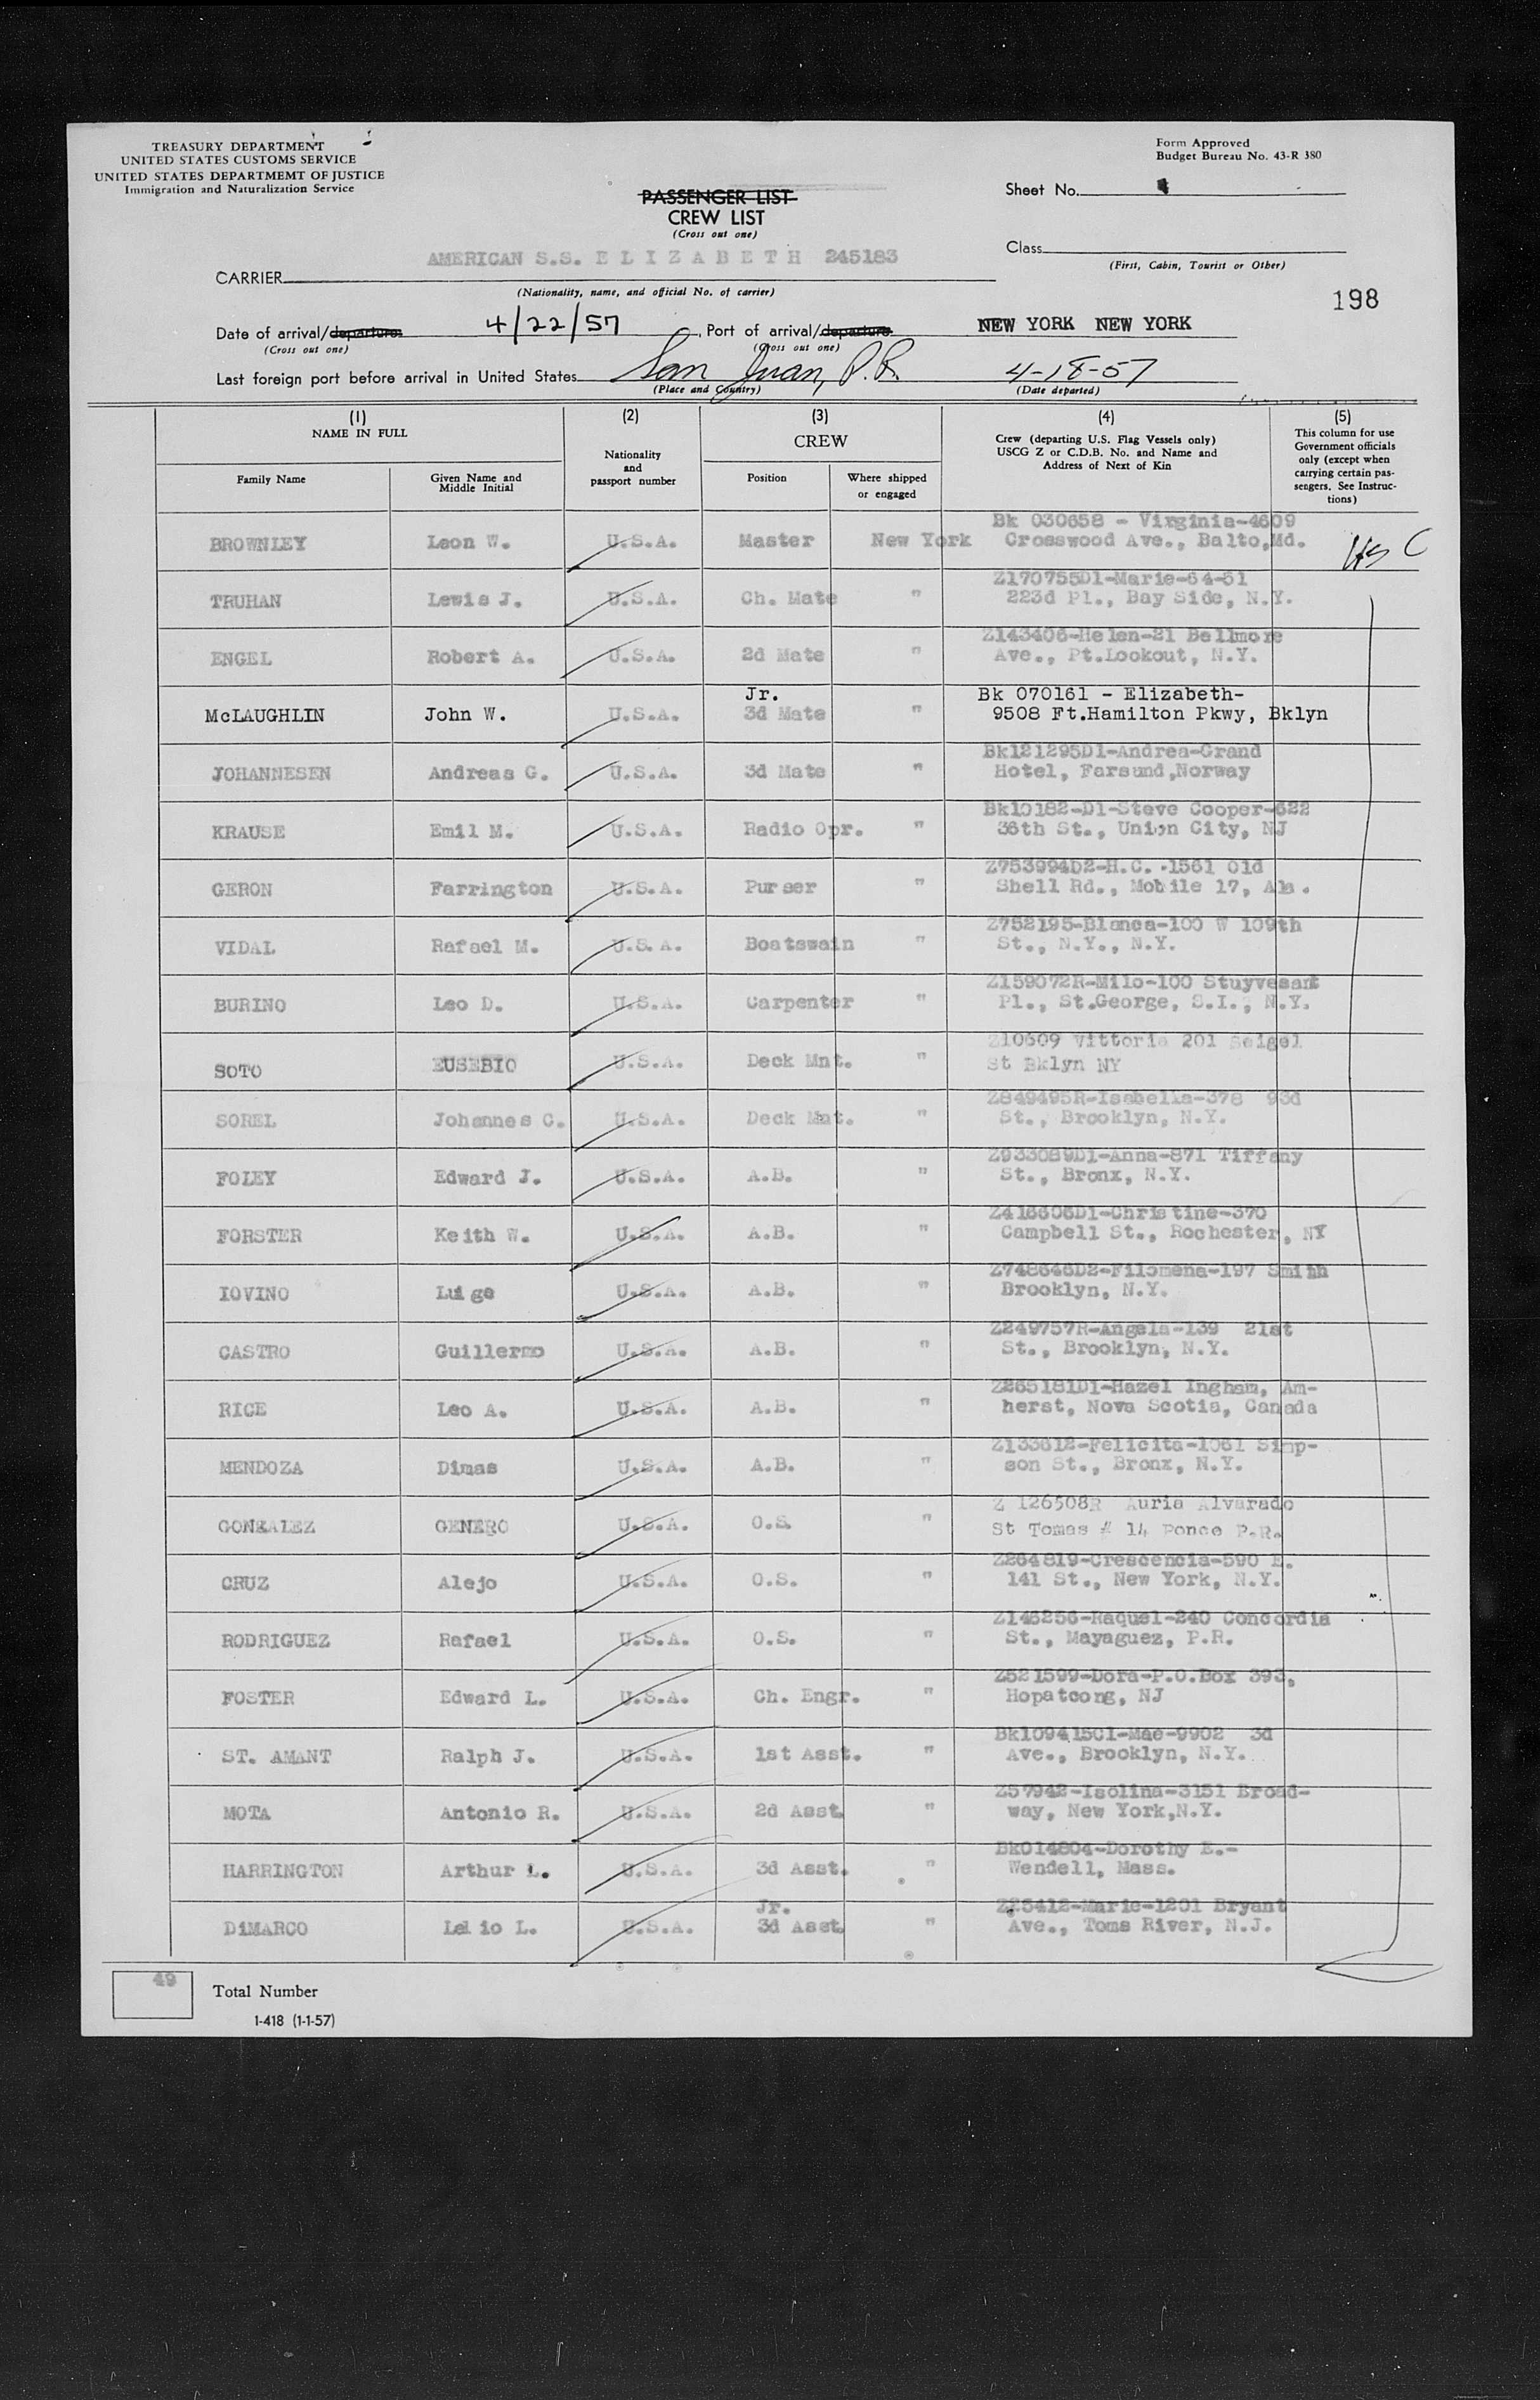 TREASURY DEPARTMENT
UNITED STATES CUSTOMS SERVICE
UNITED STATES DEPARTMEMT OF JUSTICE
Immigration and Naturalization Service
Form Approved
Budget Bureau No. 43-R 380
Sheet No.
PASSENGER LIST
CREW LIST
(Cross out one)
Class
(First, Cabin, Tourist or Other)
CARRIER AMERICAN S.S. E L I Z A B E T H 245183
(Nationality, name, and official No. of carrier)
198
Date of arrival/departure 4/22/57, Port of arrival/departure NEW YORK NEW YORK
(Cross out one) (Cross out one)
Last foreign port before arrival in United States San Juan, P.R. 4-18-57
(Place and Country) (Date departed)
(1) NAME IN FULL
Family Name
Given Name and Middle Initial
(2) Nationality and passport number
(3) CREW
Position
Where shipped or engaged
(4) Crew (departing U.S. Flag Vessels only) USCG Z or C.D.B. No. and Name and Address of Next of Kin
(5) This column for use Government officials only (except when carrying certain passengers. See Instructions)
BROWNLEY Leon W. U.S.A. Master New York Bk 030658 - Virginia-4609
Crosswood Ave., Balto,Md.
TRUHAN Lewis J. U.S.A. Ch. Mate " Z170755D1-Marie-64-51
223d Pl., Bay Side, N.Y.
ENGEL Robert A. U.S.A. 2d Mate " Z143406-Helen-21 Bellmore
Ave., Pt.Lookout, N.Y.
McLAUGHLIN John W. U.S.A. Jr. 3d Mate " Bk 070161 - Elizabeth-
9508 Ft.Hamilton Pkwy, Bklyn
JOHANNESEN Andreas G. U.S.A. 3d Mate " Bk121295D1-Andrea-Grand
Hotel, Farsund,Norway
KRAUSE Emil M. U.S.A. Radio Opr. " Bk10182-D1-Steve Cooper-622
36th St., Union City, NJ
GERON Farrington U.S.A. Purser " Z753994D2-H.C.-1561 Old
Shell Rd., Mobile 17, Ala.
VIDAL Rafael M. U.S.A. Boatswain " Z752195-Blanca-100 W 109th
St., N.Y., N.Y.
BURINO Leo D. U.S.A. Carpenter " Z159072R-Milo-100 Stuyvesant
Pl., St.George, S.I., N.Y.
SOTO EUSEBIO U.S.A. Deck Mnt. " Z10609 Vittoria 201 Seigel
St Bklyn NY
SOREL Johannes C. U.S.A. Deck Mnt. " Z849495R-Isabella-378 93d
St., Brooklyn, N.Y.
FOLEY Edward J. U.S.A. A.B. " Z933089D1-Anna-871 Tiffany
St., Bronx, N.Y.
FORSTER Keith W. U.S.A. A.B. " Z416606D1-Christine-370
Campbell St., Rochester, NY
IOVINO Luige U.S.A. A.B. " Z748646D2-Filomena-197 Smith
Brooklyn, N.Y.
CASTRO Guillermo U.S.A. A.B. " Z249757R-Angela-139 21st
St., Brooklyn, N.Y.
RICE Leo A. U.S.A. A.B. " Z265181D1-Hazel Ingham, Am-
herst, Nova Scotia, Canada
MENDOZA Dimas U.S.A. A.B. " Z133612-Felicita-1061 Simp-
son St., Bronx, N.Y.
GONZALEZ GENERO U.S.A. O.S. " Z 126508R Auria Alvarado
St Tomas # 14 Ponce P.R.
CRUZ Alejo U.S.A. O.S. " Z264819-Crescencia-590 E.
141 St., New York, N.Y.
RODRIGUEZ Rafael U.S.A. O.S. " Z146256-Raquel-240 Concordia
St., Mayaguez, P.R.
FOSTER Edward L. U.S.A. Ch. Engr. " Z521599-Dora-P.O.Box 393,
Hopatcong, NJ
ST. AMANT Ralph J. U.S.A. 1st Asst. " Bk109415C1-Mae-9902 3d
Ave., Brooklyn, N.Y.
MOTA Antonio R. U.S.A. 2d Asst. " Z57942-Isolina-3151 Broad-
way, New York,N.Y.
HARRINGTON Arthur L. U.S.A. 3d Asst. " Bk014804-Dorothy E.-
Wendell, Mass.
DiMARCO Lelio L. U.S.A. Jr. 3d Asst. " Z25412-Marie-1201 Bryant
Ave., Toms River, N.J.
49 Total Number
1-418 (1-1-57)